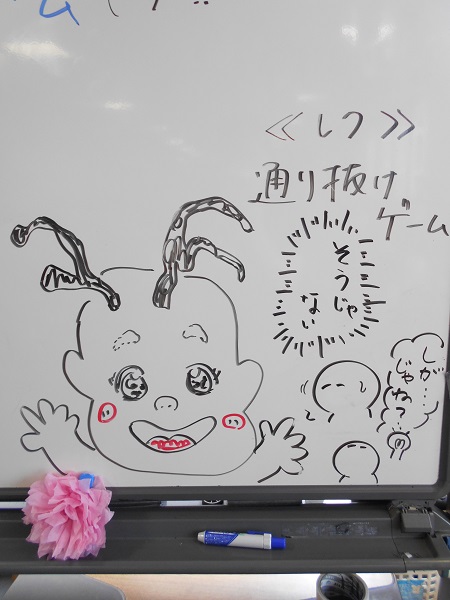 ≪レク≫
通り抜け
ゲーム
そうじゃ
ない
しが…
じゃね?…